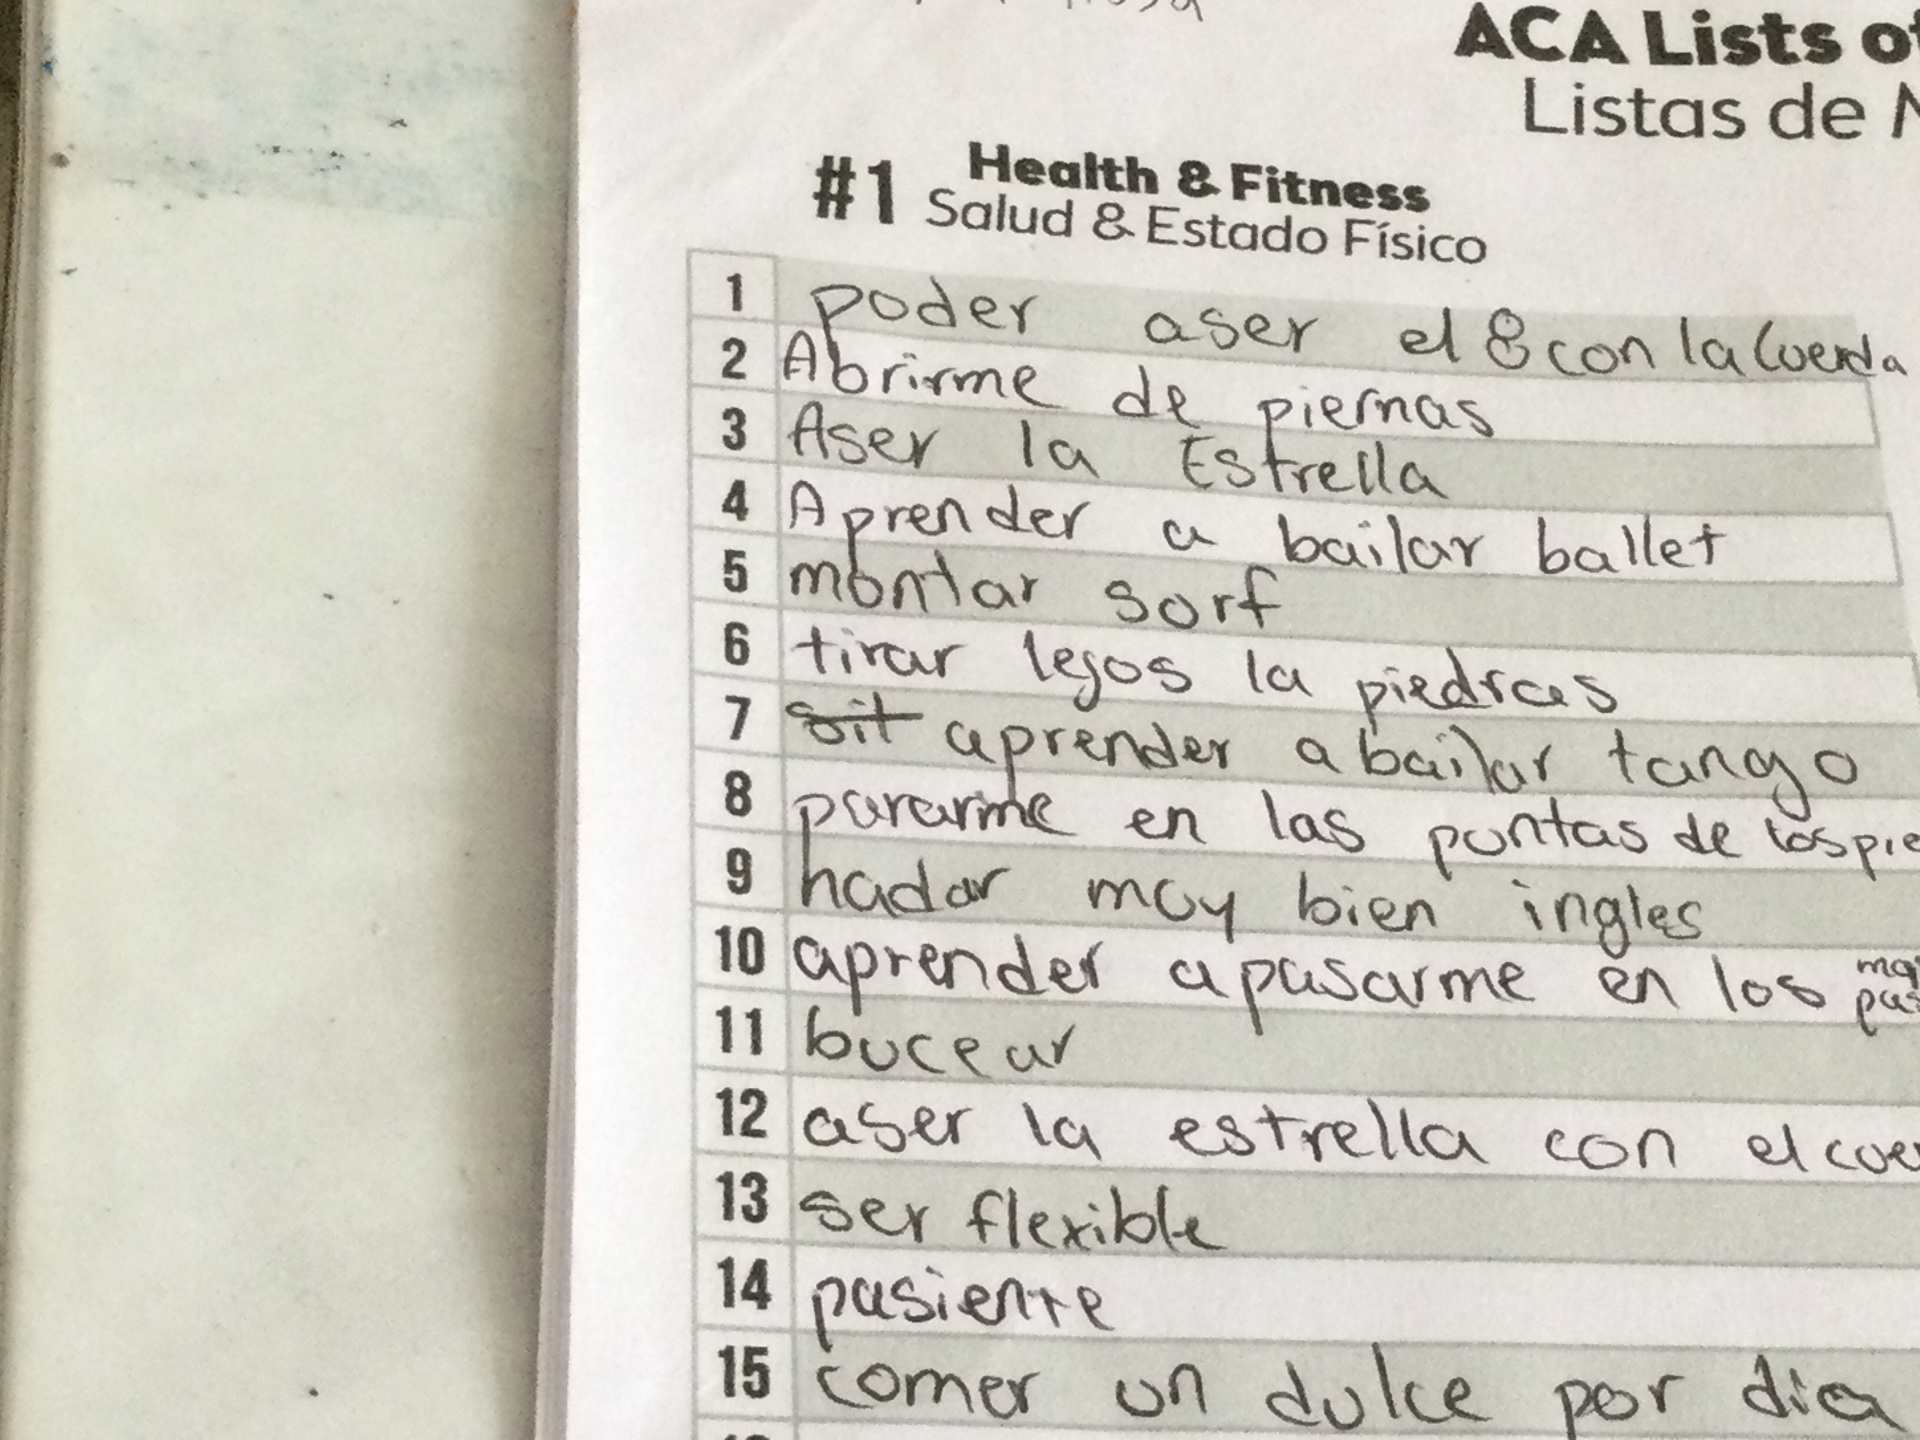 ACA Lists of
Listas de
#1 Health & Fitness
Salud & Estado Físico
1 poder aser el 8 con la Cuerda
2 Abrirme de piernas
3 Aser la Estrella
4 Aprender a bailar ballet
5 montar sorf
6 tirar lejos la piedras
7 sit aprender a bailar tango
8 pararme en las puntas de los pie
9 hadar muy bien ingles
10 aprender a pasarme en los
11 bucear
12 aser la estrella con el cuer
13 ser flexible
14 pasiente
15 comer un dulce por dia